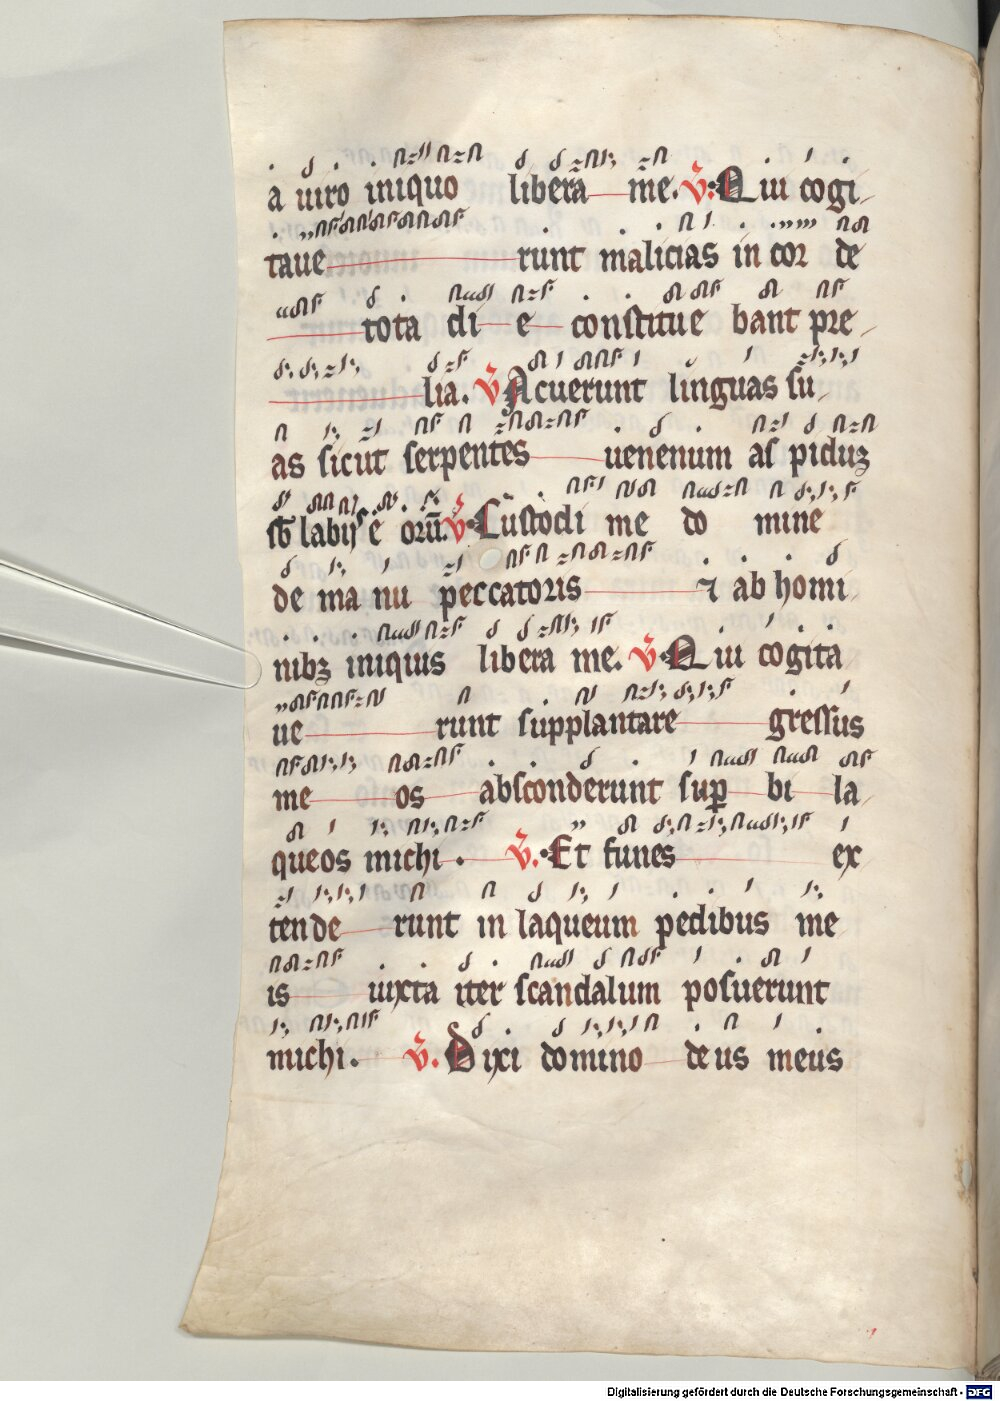 a uiro iniquo libera me. V. Qui cogi
taue runt malicias in cor de
tota di e constitue bant pre
lia. V Acuerunt linguas su
as sicut serpentes uenenum as piduʒ
sb labijs e orū. V. Custodi me do mine
de ma nu peccatoris ⁊ ab homi
nibʒ iniquis libera me. V. Qui cogita
ue runt supplantare gressus
me os absconderunt sup bi la
queos michi. V. Et funes ex
tende runt in laqueum pedibus me
is iuxta iter scandalum posuerunt
michi. V. Dixi domino deus meus
Digitalisierung gefördert durch die Deutsche Forschungsgemeinschaft - DFG